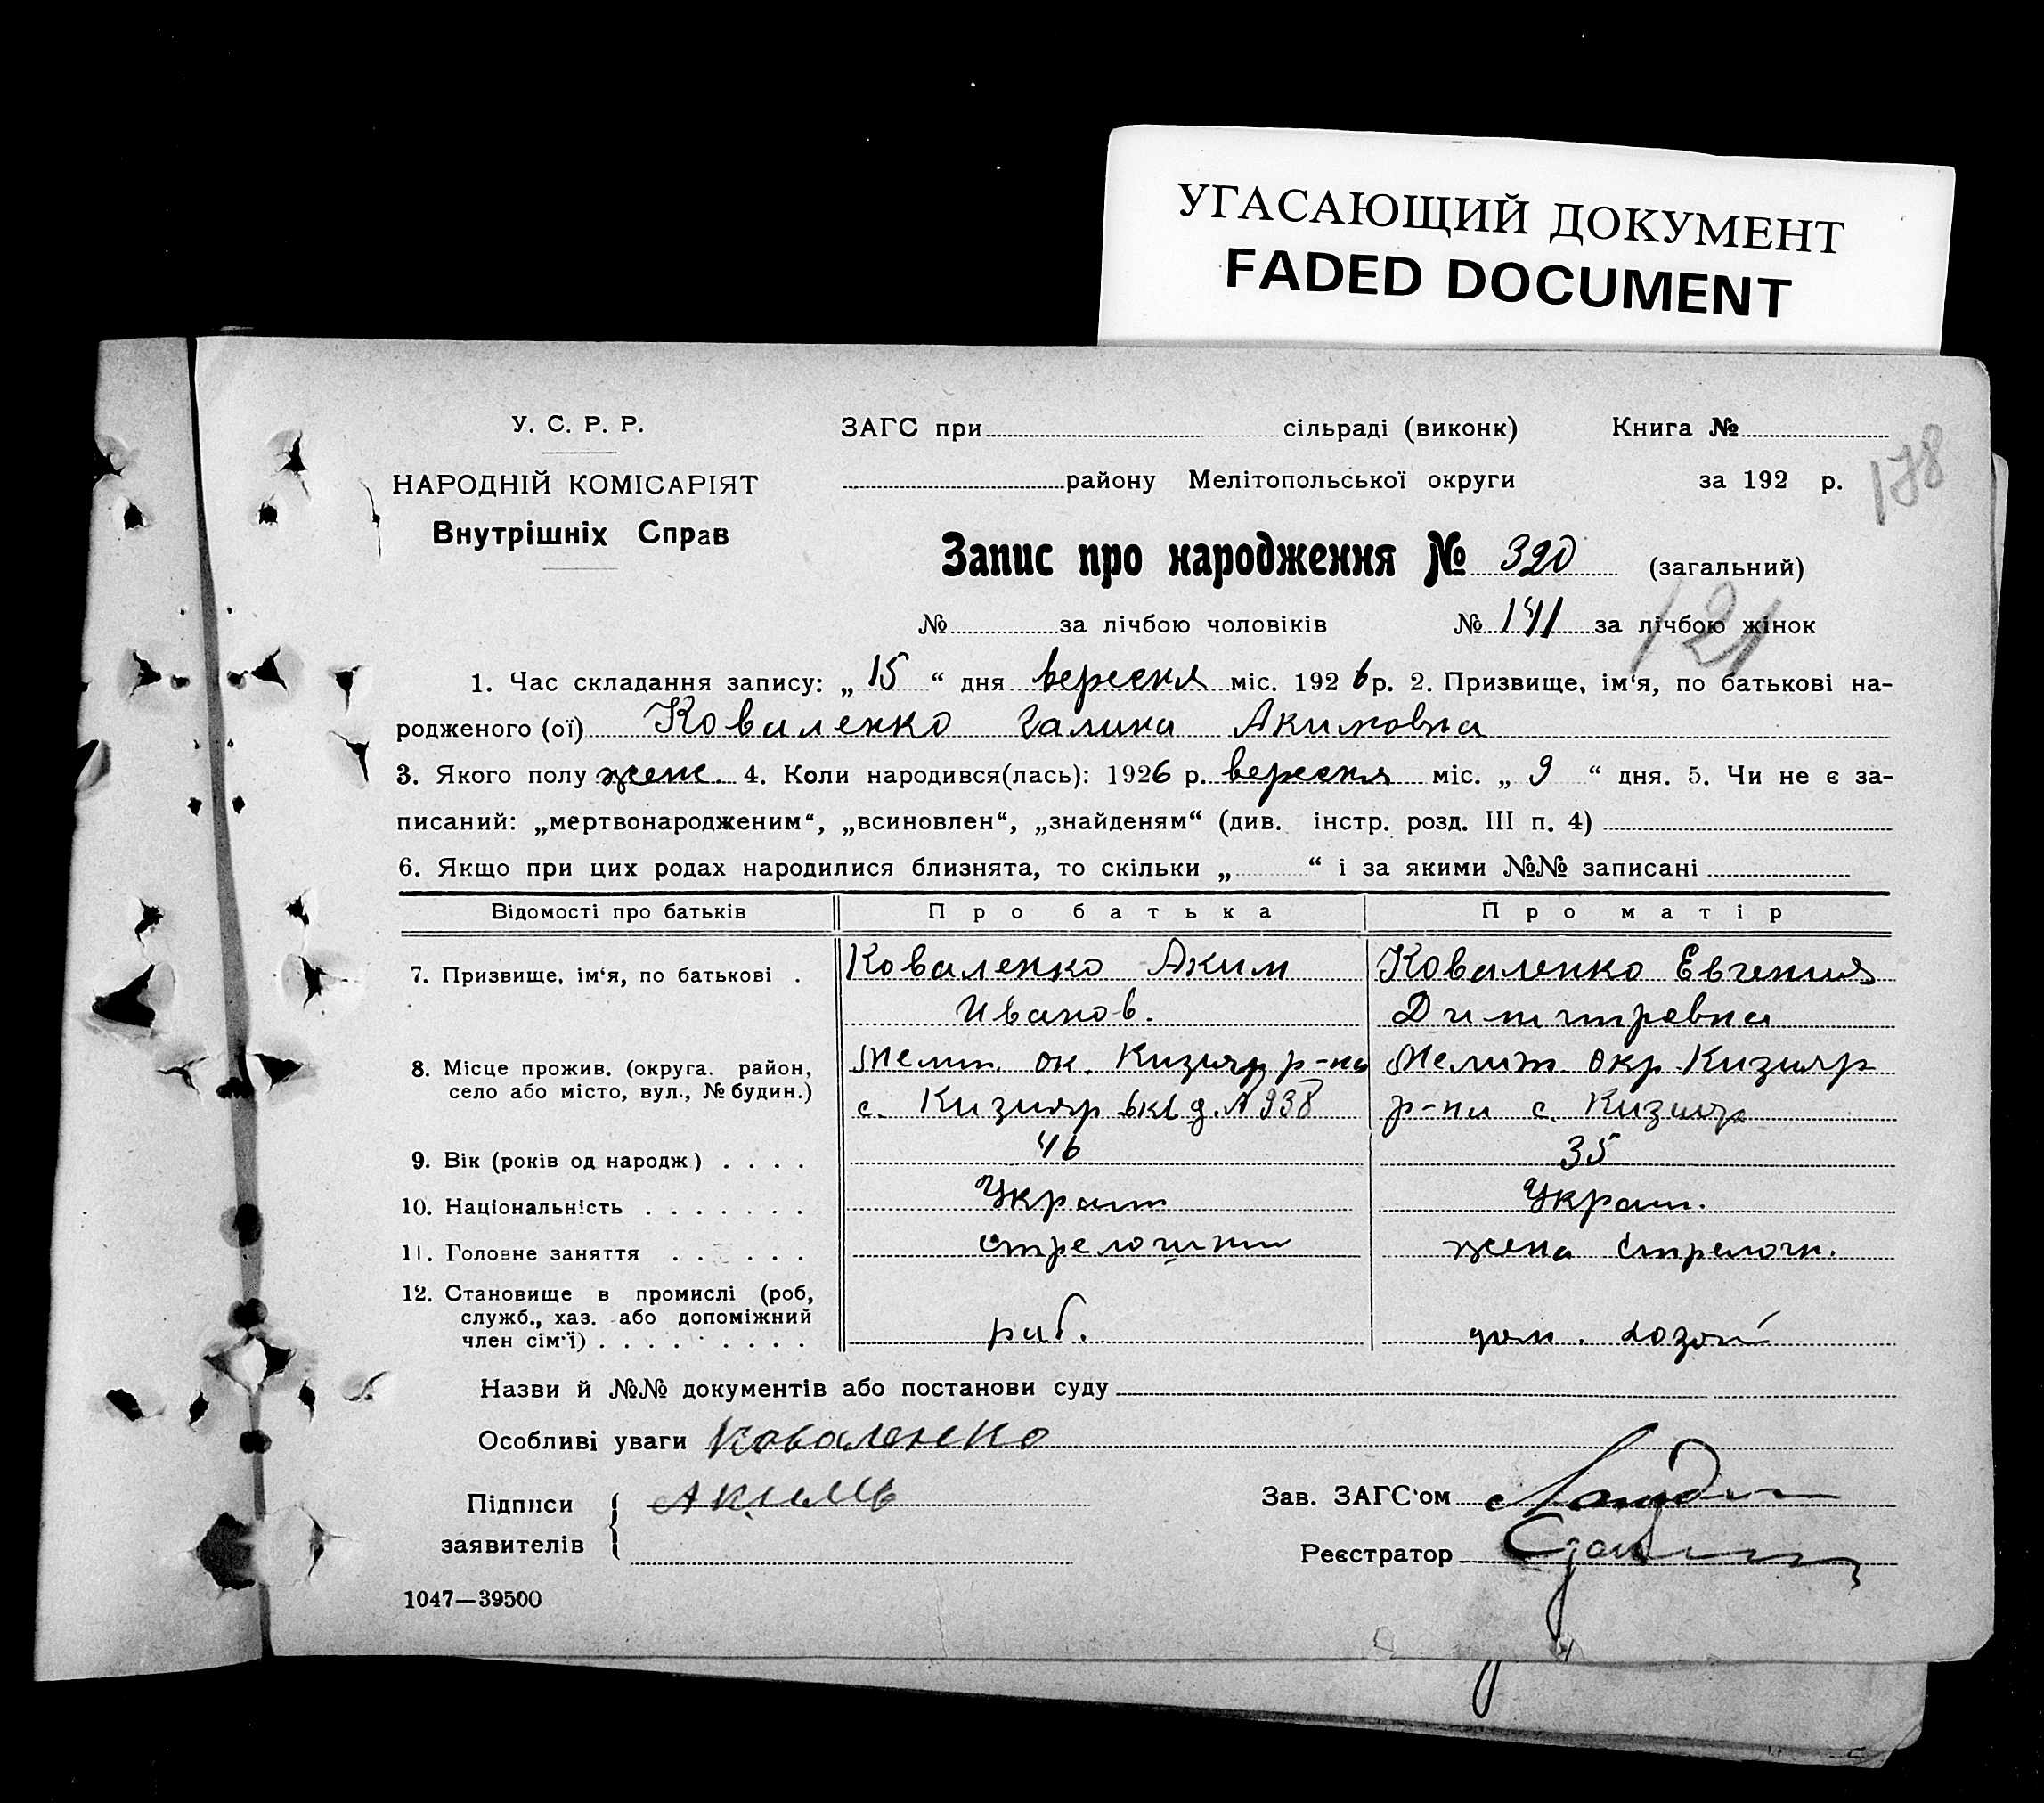 УГАСАЮЩИЙ ДОКУМЕНТ
FADED DOCUMENT
У. С. Р. Р.
НАРОДНІЙ КОМІСАРІЯТ
Внутрішніх Справ
ЗАГС при сільраді (виконк) Книга №
району Мелітопольської округи за 192 р.
178
Запис про народження № 320 (загальний)
№ за лічбою чоловіків № 141 за лічбою жінок
121
1. Час складання запису: „ 15 “ дня вересня міс. 1926 р. 2. Призвище, ім‘я, по батькові на-
родженого (ої) Коваленко Галина Акимовна
3. Якого полу жен. 4. Коли народився(лась): 1926 р. вересня міс. „ 9 “ дня. 5. Чи не є за-
писаний: „мертвонародженим“, „всиновлен“, „знайденям“ (див. інстр. розд. III п. 4)
6. Якщо при цих родах народилися близнята, то скільки „ “ і за якими №№ записані
Відомості про батьків Про батька Про матір
7. Призвище, ім‘я, по батькові . Коваленко Аким Коваленко Евгения
Иванов. Димитревна
8. Місце прожив. (округа. район, Мелит. ок. Кизияр р-на Мелит. окр. Кизияр
село або місто, вул., № будин.) с. Кизияр д. 938 р-на с. Кизияр
9. Вік (років од народж) . . . . 46 35
10. Національність . . . . . . . Украин Украин.
11. Головне заняття . . . . . . стрелочник жена стрелочн.
12. Становище в промислі (роб,
служб., хаз. або допоміжний
член сім‘ї) . . . . . . . . . раб. дом. хозяй
Назви й №№ документів або постанови суду
Особливі уваги Коваленко
Підписи Акимъ Зав. ЗАГС‘ом
заявителів Реєстратор
1047—39500